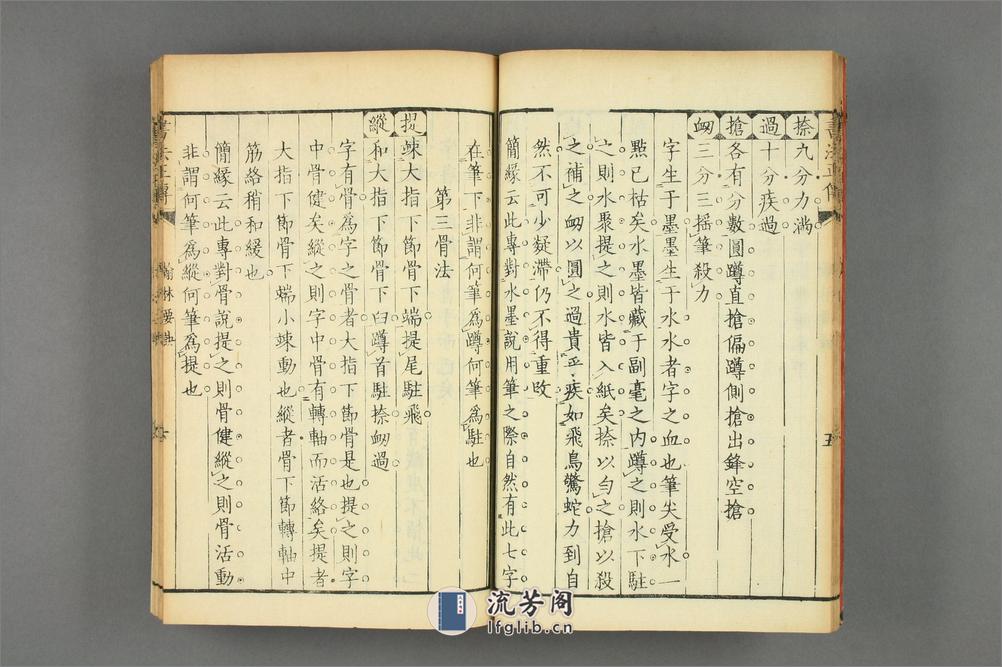 捺 九分力滿
過 十分疾過
搶 各有分數圓蹲直搶偏蹲側搶出鋒空搶
衂 三分三搖筆殺力
字生于墨墨生于水水者字之血也筆尖受水一
點已枯矣水墨皆藏于副毫之內蹲之則水下駐
之則水聚提之則水皆入紙矣捺以勻之搶以殺
之補之衂以圓之過貴乎疾如飛鳥驚蛇力到自
然不可少疑滯仍不得重改
簡緣云此專對水墨說用筆之際自然有此七字
在筆下非謂何筆為蹲何筆為駐也
第三骨法
提 竦大指下節骨下端提尾駐飛
縱 和大指下節骨下臼蹲首駐捺衂過
字有骨為字之骨者大指下節骨是也提之則字
中骨健矣縱之則字中骨有轉軸而活絡矣提者
大指下節骨下端小竦動也縱者骨下節轉軸中
筋絡稍和緩也
簡緣云此專對骨說提之則骨健縱之則骨活動
非謂何筆為縱何筆為提也
書法正傳
翰林要訣
書法正傳
五
流芳阁
lfglib.cn